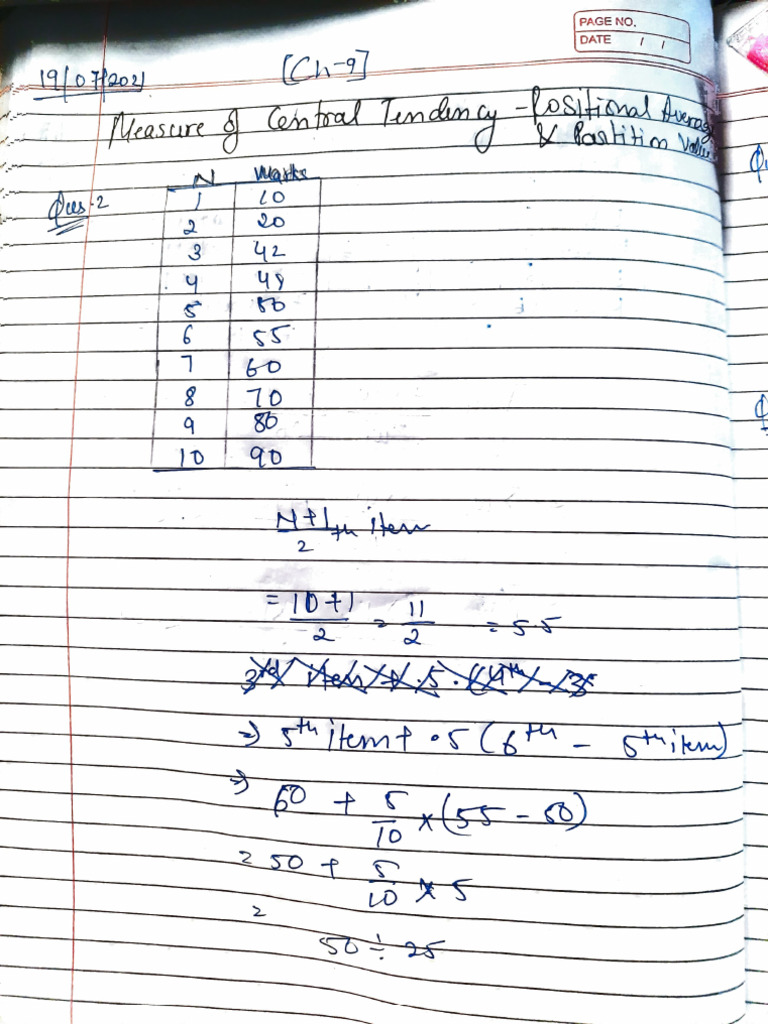 PAGE NO.
DATE / /
19/07/2021 [Ch-9]
Measure of Central Tendency - Positional Average
& Partition Value
Ques-2
N Marks
1 10
2 20
3 42
4 48
5 50
6 55
7 60
8 70
9 80
10 90
N+1/2 th item
= 10+1/2 = 11/2 = 5.5
3rd item + .5 (4th - 3
⇒ 5th item + .5 (6th - 5th item)
⇒ 50 + 5/10 × (55 - 50)
= 50 + 5/10 × 5
=
50 ÷ 25